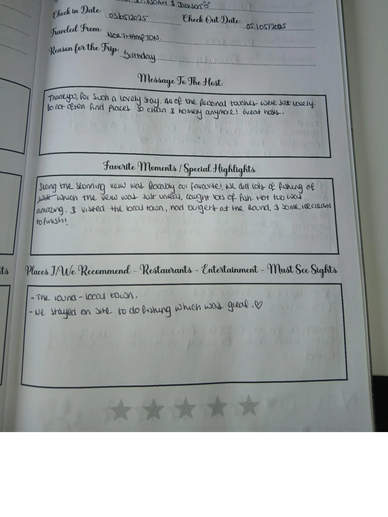 NOAH & JACKSON
Check in Date: 03/05/2025 Check Out Date: 05/05/2025
Traveled From: NORTHAMPTON
Reason for the Trip: Sunday
Message To The Host
Thankyou for such a lovely stay. All of the personal touches were just lovely.
Do not often find places so clean & homely anymore! Great hosts.
Favorite Moments / Special Highlights
Seeing the stunning view was probably our favourite! We did lots of fishing off
which the view was just unreal, caught lots of fish. Hot tub was
amazing. & visited the local town, had burgers at the Round, & some ice cream
to finish!
ts
Places I/We Recommend - Restaurants - Entertainment - Must See Sights
- The round - local town.
- We stayed on site to do fishing which was great. ♡